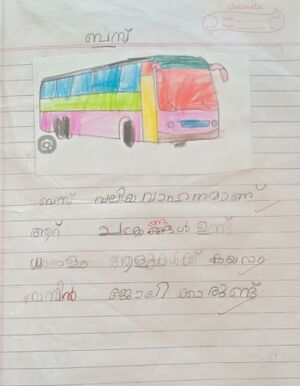 classmate
ബസ്
ബസ് വലിയ വാഹനമാണ്
ആറ് ചക്രങ്ങൾ ഉണ്ട്
ധാരാളം ആളുകൾക്ക് കയറാം
ബസിൽ ജോലിക്കാരുണ്ട്